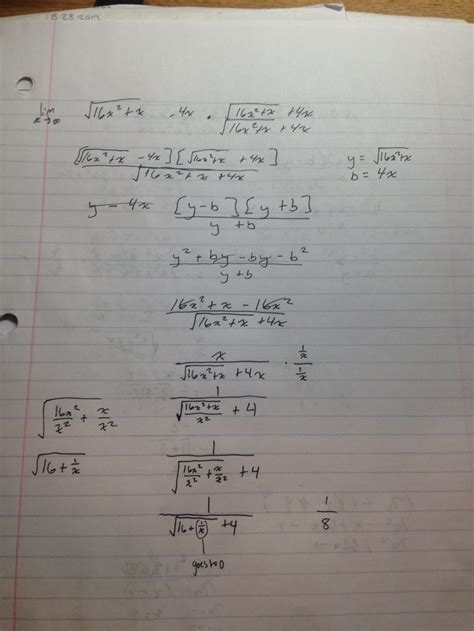 8.28.2017
lim x→∞ √(16x²+x) - 4x · (√(16x²+x) + 4x)/(√(16x²+x) + 4x)
[√(16x²+x) - 4x][√(16x²+x) + 4x]/(√(16x²+x) + 4x) y = √(16x²+x)
b = 4x
y - 4x [y-b][y+b]/(y+b)
(y² + by - by - b²)/(y+b)
(16x² + x - 16x²)/(√(16x²+x) + 4x)
x/(√(16x²+x) + 4x) · (1/x)/(1/x)
√(16x²/x² + x/x²) 1/(√((16x²+x)/x²) + 4)
√(16 + 1/x) 1/(√(16x²/x² + x/x²) + 4)
1/(√(16 + (1/x)) + 4) 1/8
goes to 0